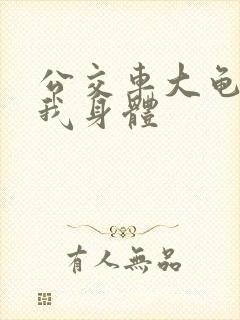 公交車大龟
我身體
有人無品